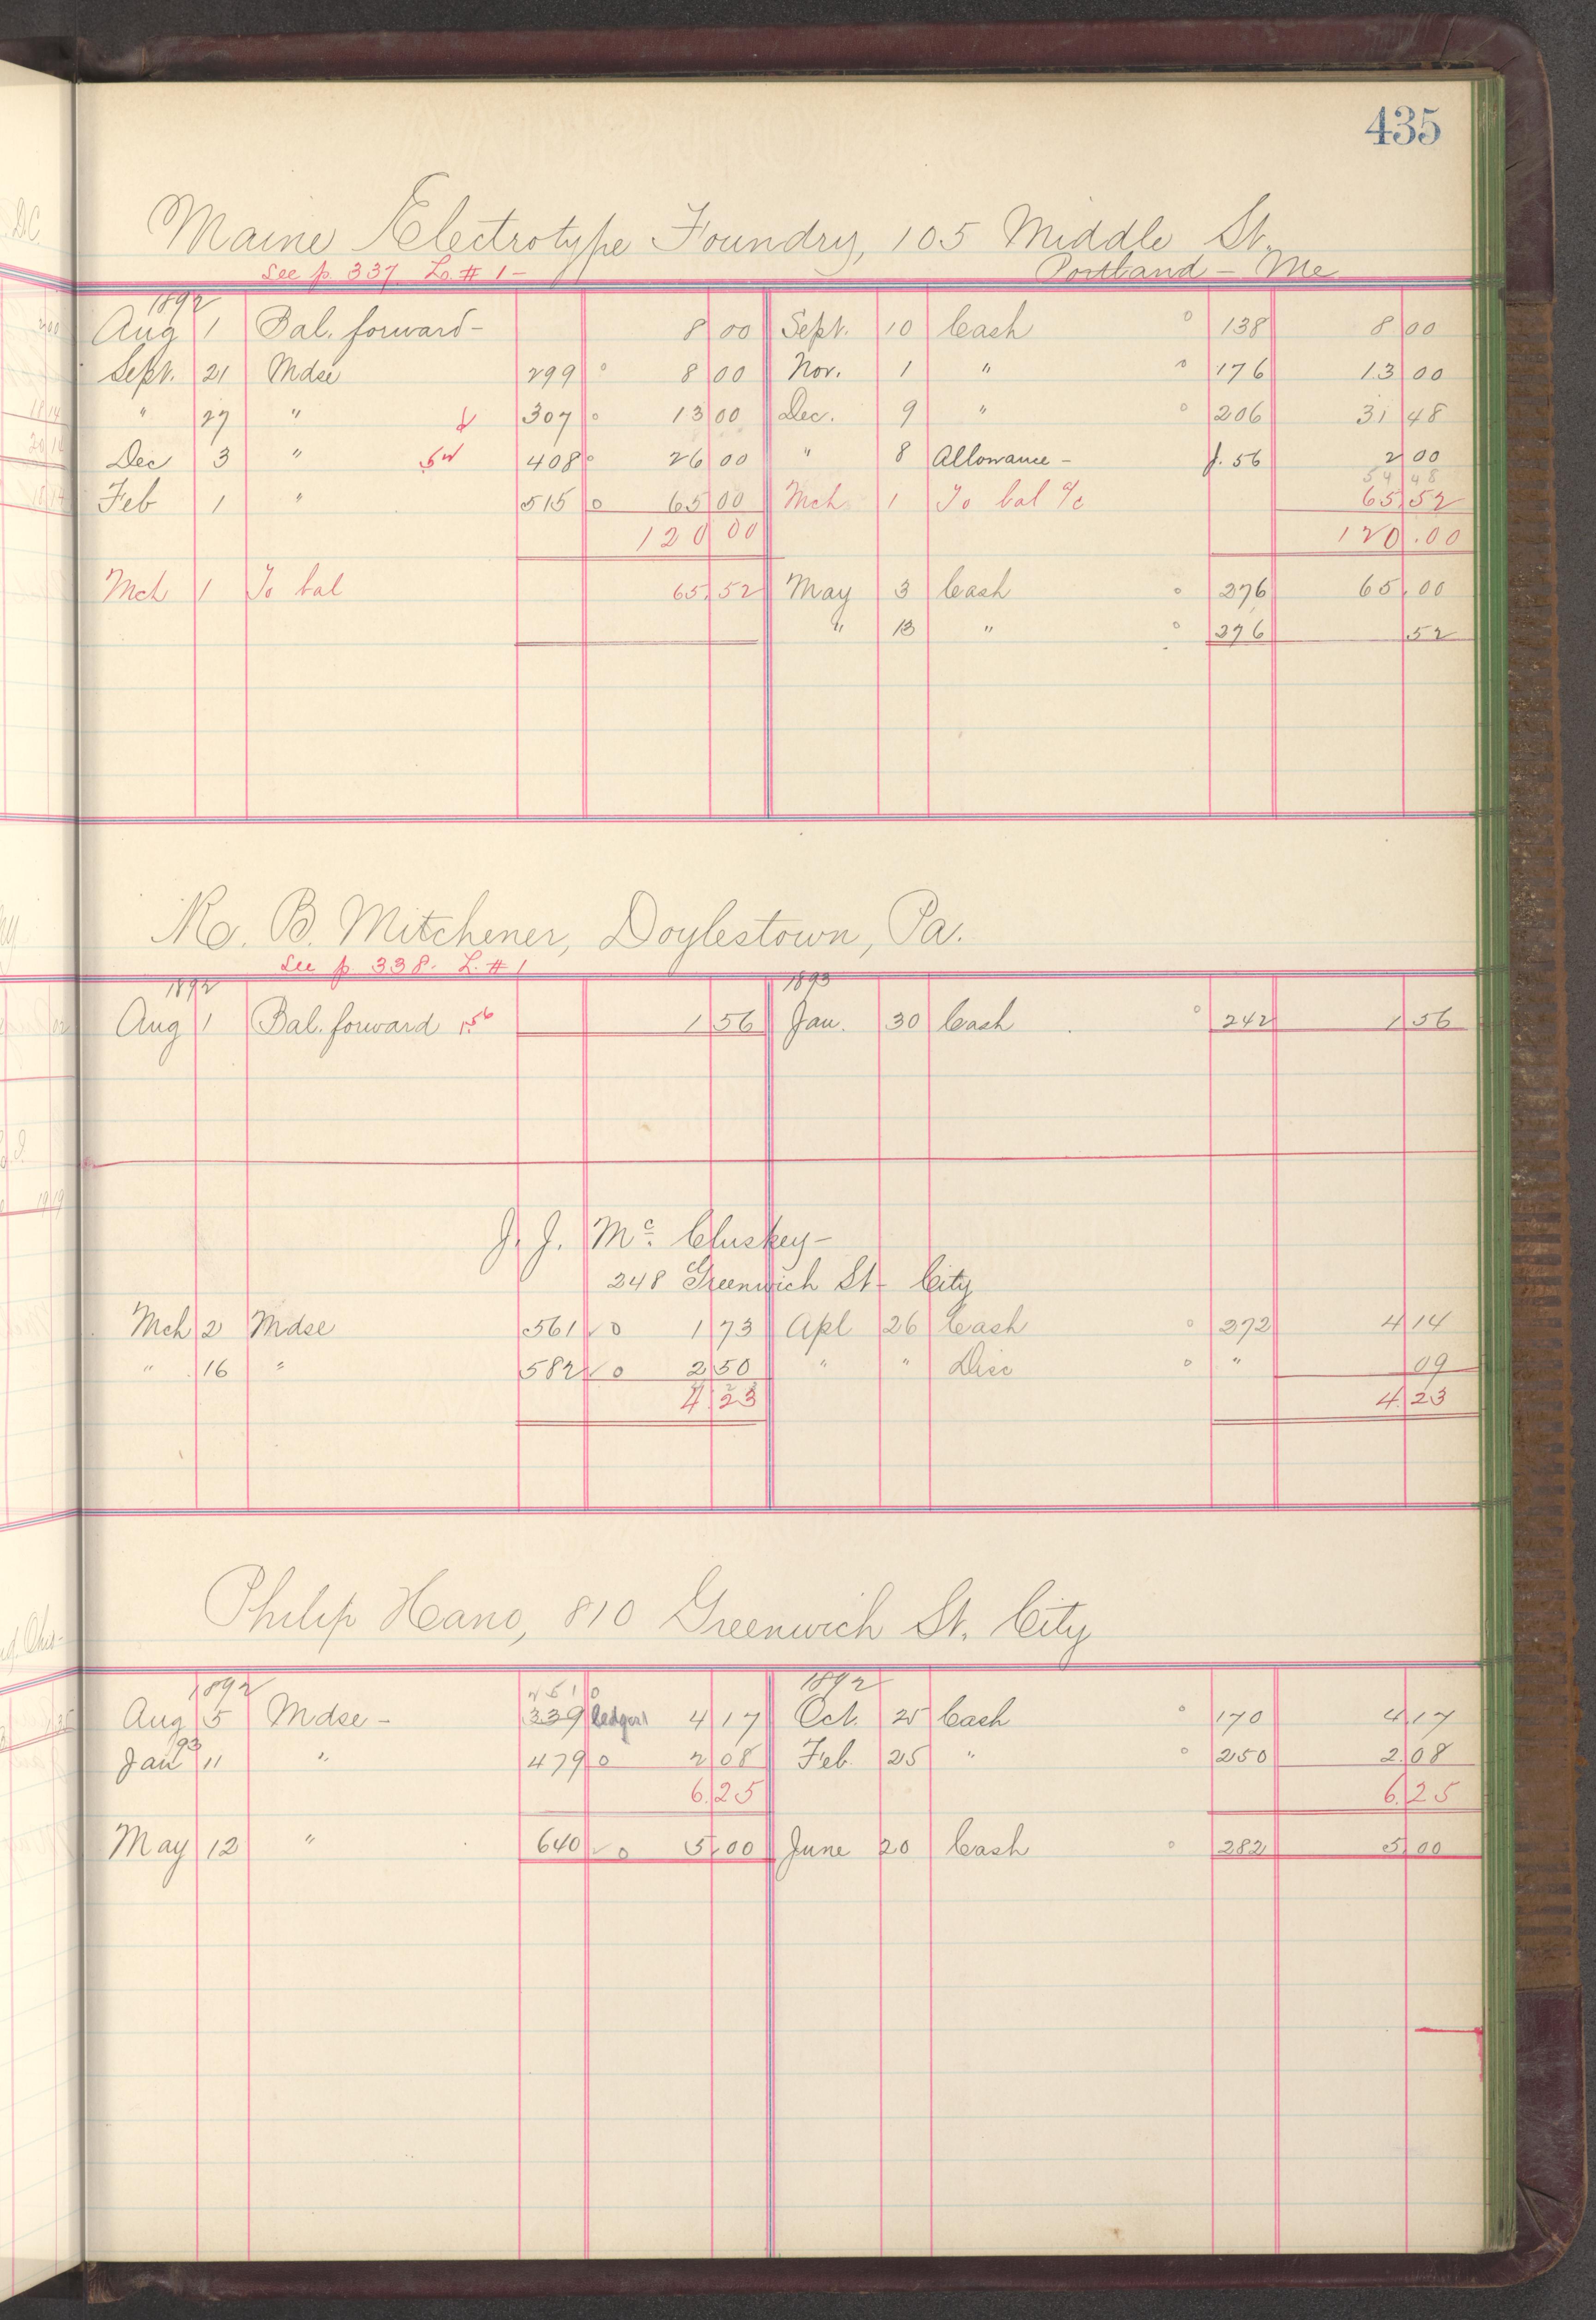 435
Maine Electrotype Foundry, 105 Middle St.
See p. 337 L. # 1 - Portland - Me
1892
Aug 1 Bal. forward - 8 00 Sept. 10 Cash 138 8 00
Sept. 21 Mdse 299 8 00 Nov. 1 " 176 13 00
" 27 " 307 13 00 Dec. 9 " 206 31 48
Dec 3 " 408 26 00 " 8 Allowance - J. 56 2 00
54 48
Feb 1 " 515 65 00 Mch 1 To bal a/c 65.52
120 00 120.00
Mch 1 To bal 65.52 May 3 Cash 276 65.00
" 13 " 276 52
R. B. Mitchener, Doylestown, Pa.
See p 338. L. # 1
1892 1893
Aug 1 Bal. forward 1.56 1 56 Jan. 30 Cash 242 1 56
J. J. Mc. Cluskey -
248 Greenwich St - City
Mch 2 Mdse 561 ✓ o 1 73 Apl 26 Cash 272 4 14
" 16 " 582 ✓ o 2 50 " " Disc " 09
4.23 4.23
Philip Hano, 810 Greenwich St. City
1892 251 1892
Aug 5 Mdse - 339 ledger 1 4 17 Oct. 25 Cash 170 4 17
Jan 93 11 " 479 o 2 08 Feb. 25 " 250 2.08
6.25 6.25
May 12 " 640 ✓ o 5.00 June 20 Cash 282 5 00